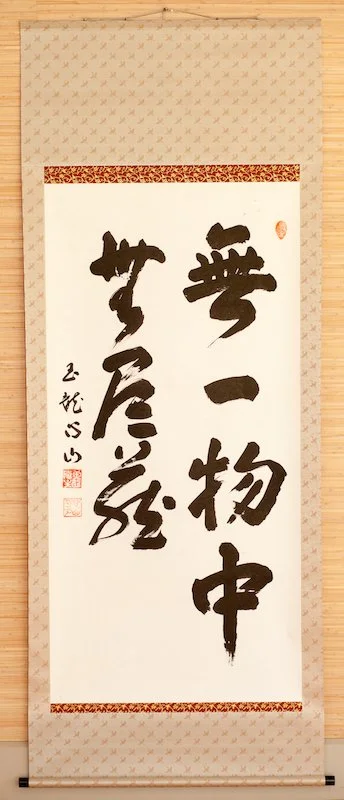 無一物中
無尽蔵
玉龍昌山